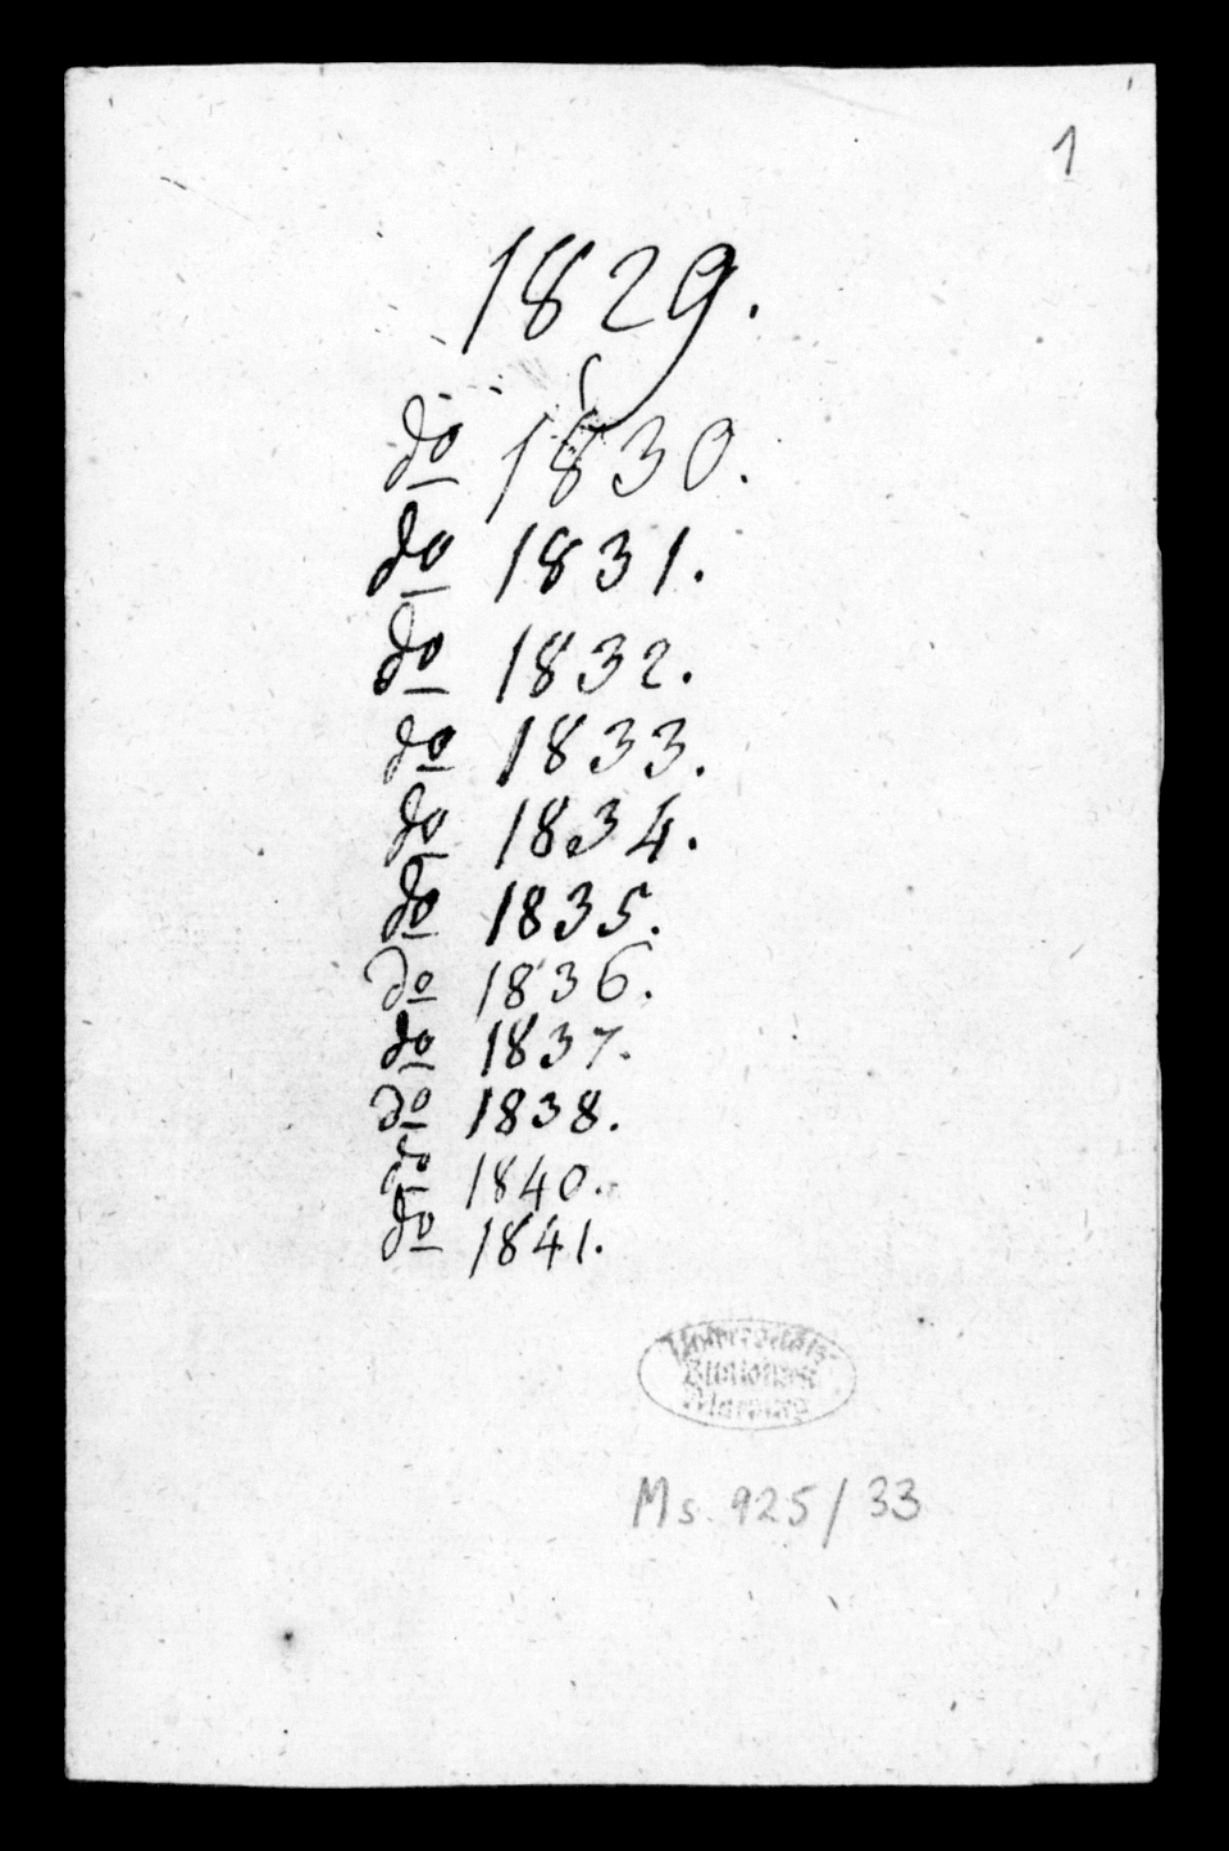 1
1829.
do 1830.
do 1831.
do 1832.
do 1833.
do 1834.
do 1835.
do 1836.
do 1837.
do 1838.
do 1840.
do 1841.
Universitäts-
Bibliothek
Marburg
Ms. 925/33